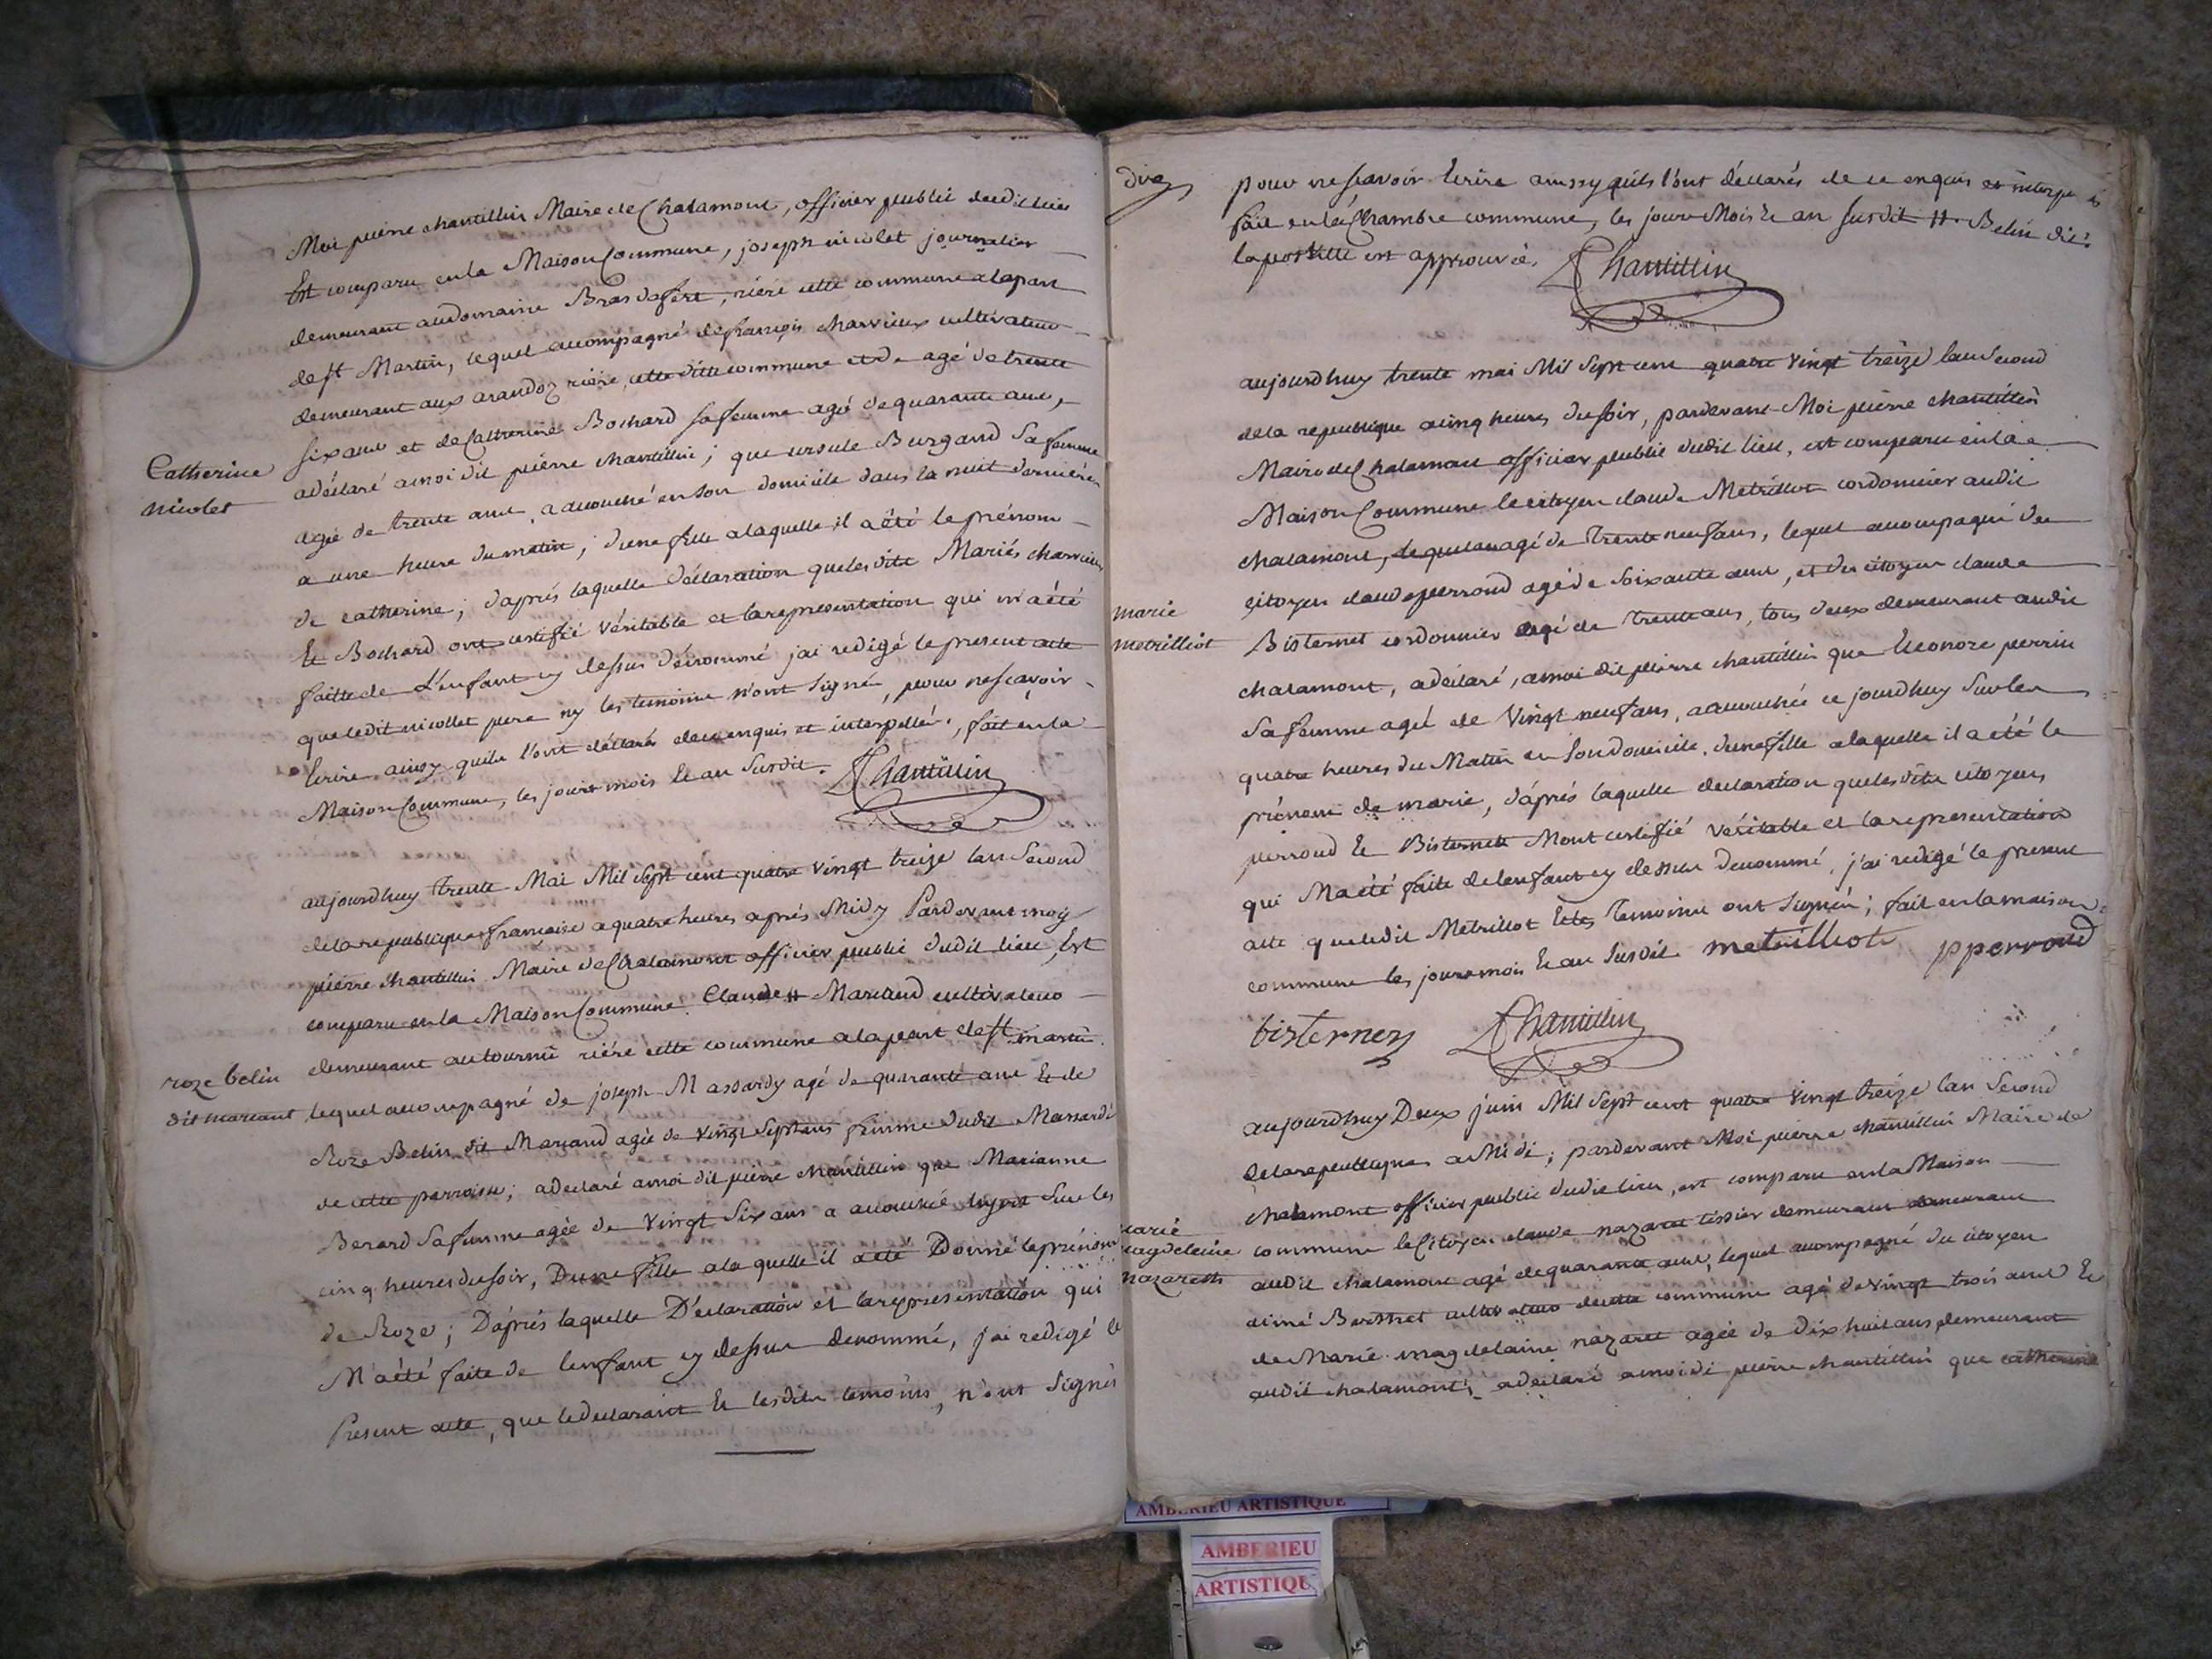 Moi pierre chantillin Maire de Chalamont, officier public dudit lieu
Est comparu en la Maison Commune, joseph nicolet journalier
demeurant audomaine Bras defert, riére cette commune alapart
de st Martin, lequel accompagné de françois charvieux cultivateur
demeurant aux arandoz riére cette ditte commune et de agé de trente
six ans et de Catherine Bochard sa femme agée de quarante ans,
Catherine
nicolet
a déclaré amoi dit pierre chantillin; que ursule Burgand Sa femme
agée de trente ans, a accouché en son domicile dans la nuit derniére
a une heure du matin, d'une fille alaquelle il a été le prénom
de catherine; d'aprés laquelle déclaration que lesdits Mariés charvieux
Et Bochard ont certiffié véritable et la representation qui m'a été
faitte de L'enfant cy dessus dénommé jai redigé le present acte
que ledit nicollet pere ny les temoins n'ont signé, pour ne sçavoir
Ecrire ainsy quils l'ont déclaré de ce enquis et interpellés, fait en la
Maison Commune, les jour mois Et an Susdit. Chantillin
aujourdhuy trente Mai Mil Sept cent quatre vingt treize lan Second
delarepublique francaise a quatre heures aprés Midy Pardevant moy
pierre chantillin Maire de Chalamont officier public dudit lieu, Est
comparu en la Maison Commune Claude # Marcand cultivateur
roze belin
dit marcant
demeurant au tournu riére cette commune alapart de st martin
lequel accompagné de joseph Massardy agé de quarante ans Et de
Roze Belin dit Marcand agée de vingt Sept ans femme dudit Massardi
de cette parroisse; adeclaré amoi dit pierre chantillin que Marianne
Berard Sa femme agée de vingt Six ans a accouché Sur les
cinq heures du soir, Dune fille ala quelle il a été Donné le prénom
de Roze; D'aprés laquelle Déclaration et la representation qui
M'a été faite de lenfant cy dessus denommé, j'ai redigé le
Present acte, que le declarant Et lesdits temoins, n'ont Signés
pour ne scavoir Ecrire ainssy quils l'ont déclarés de ce enquis et
fait en la Chambre commune, les jour Mois Et an susdit # Belin dit
lapostille est approuvée. Chantillin
aujourdhuy trente mai Mil Sept cent quatre vingt treize lan Second
dela republique acinq heures du soir, pardevant Moi pierre chantillin
Maire de Chalamont officier public dudit lieu, est comparu en la
Maison Commune le citoyen claude Metrillot cordonnier audit
chalamont, agé de Trente neuf ans, lequel accompagné du
citoyen claude perroud agé de Soixante ans, et du citoyen claude
marie
metrilliot
Bisternet cordonnier agé de Trente ans, tous deux demeurant audit
chalamont, adéclaré, amoi dit pierre chantillin que Eleonore perrin
Sa femme agée de Vingt neuf ans, aaccouchée ce jourdhuy Sur les
quatre heures du Matin en Son domicile, d'une fille alaquelle il a été le
prénom de marie, d'áprés laquelle declaration que lesdits citoyens
perroud Et Bisternet M'ont certiffié véritable et la representation
qui M'a été faite de lenfant cy dessus denommé, j'ai redigé le present
acte que ledit Métrillot Et les Temoins ont Signés; fait en la maison
commune les jour mois Et an Susdit metrilliot pperroud
bisternez Chantillin
aujourdhuy Deux juin Mil Sept cent quatre vingt treize lan Second
delarepublique a Midi; pardevant Moi pierre chantillin Maire de
chalamont officier public dudit lieu, est comparu en la Maison
marie
magdeleine
nazareth
commune le Citoyen claude nazaret tissier demeurant
audit chalamont agé de quarante ans, lequel accompagné du citoyen
aimé cultivateur de cette commune agé de vingt trois ans Et
de Marie magdelaine nazaret agée de Dix huit ans demeurant
audit chalamont; adeclaré amoi di pierre chantillin que catherine
AMBERIEU ARTISTIQUE
AMBERIEU
ARTISTIQU